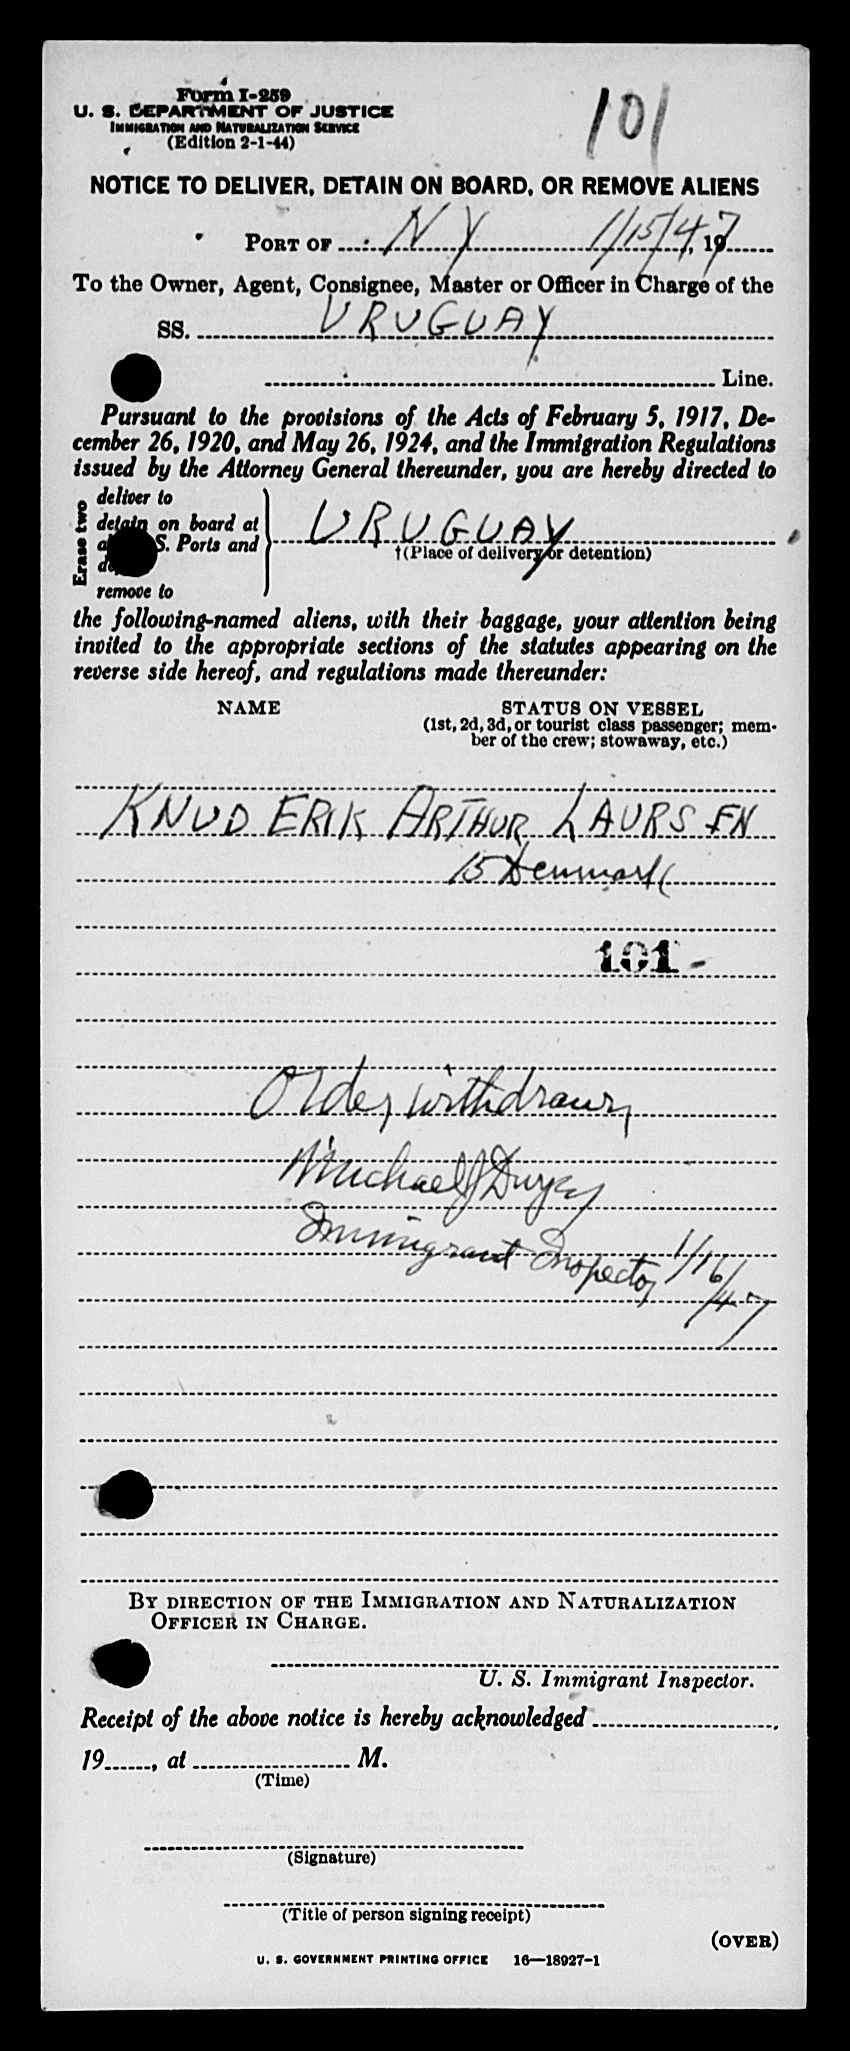 Form I-259
101
U. S. DEPARTMENT OF JUSTICE
IMMIGRATION AND NATURALIZATION SERVICE
(Edition 2-1-44)
NOTICE TO DELIVER, DETAIN ON BOARD, OR REMOVE ALIENS
PORT OF N Y 1/15/47, 19
To the Owner, Agent, Consignee, Master or Officer in Charge of the
SS. URUGUAY
Line.
Pursuant to the provisions of the Acts of February 5, 1917, De-
cember 26, 1920, and May 26, 1924, and the Immigration Regulations
issued by the Attorney General thereunder, you are hereby directed to
Erase two
deliver to
detain on board at
S. Ports and
URUGUAY
†(Place of delivery or detention)
remove to
the following-named aliens, with their baggage, your attention being
invited to the appropriate sections of the statutes appearing on the
reverse side hereof, and regulations made thereunder:
NAME STATUS ON VESSEL
(1st, 2d, 3d, or tourist class passenger; mem-
ber of the crew; stowaway, etc.)
KNUD ERIK ARTHUR LAURSEN
15 Denmark
101-
Order withdrawn
Michael J
Immigrant Inspector 1/16/47
BY DIRECTION OF THE IMMIGRATION AND NATURALIZATION
OFFICER IN CHARGE.
U. S. Immigrant Inspector.
Receipt of the above notice is hereby acknowledged
19, at M.
(Time)
(Signature)
(Title of person signing receipt)
(OVER)
U. S. GOVERNMENT PRINTING OFFICE 16—18927-1